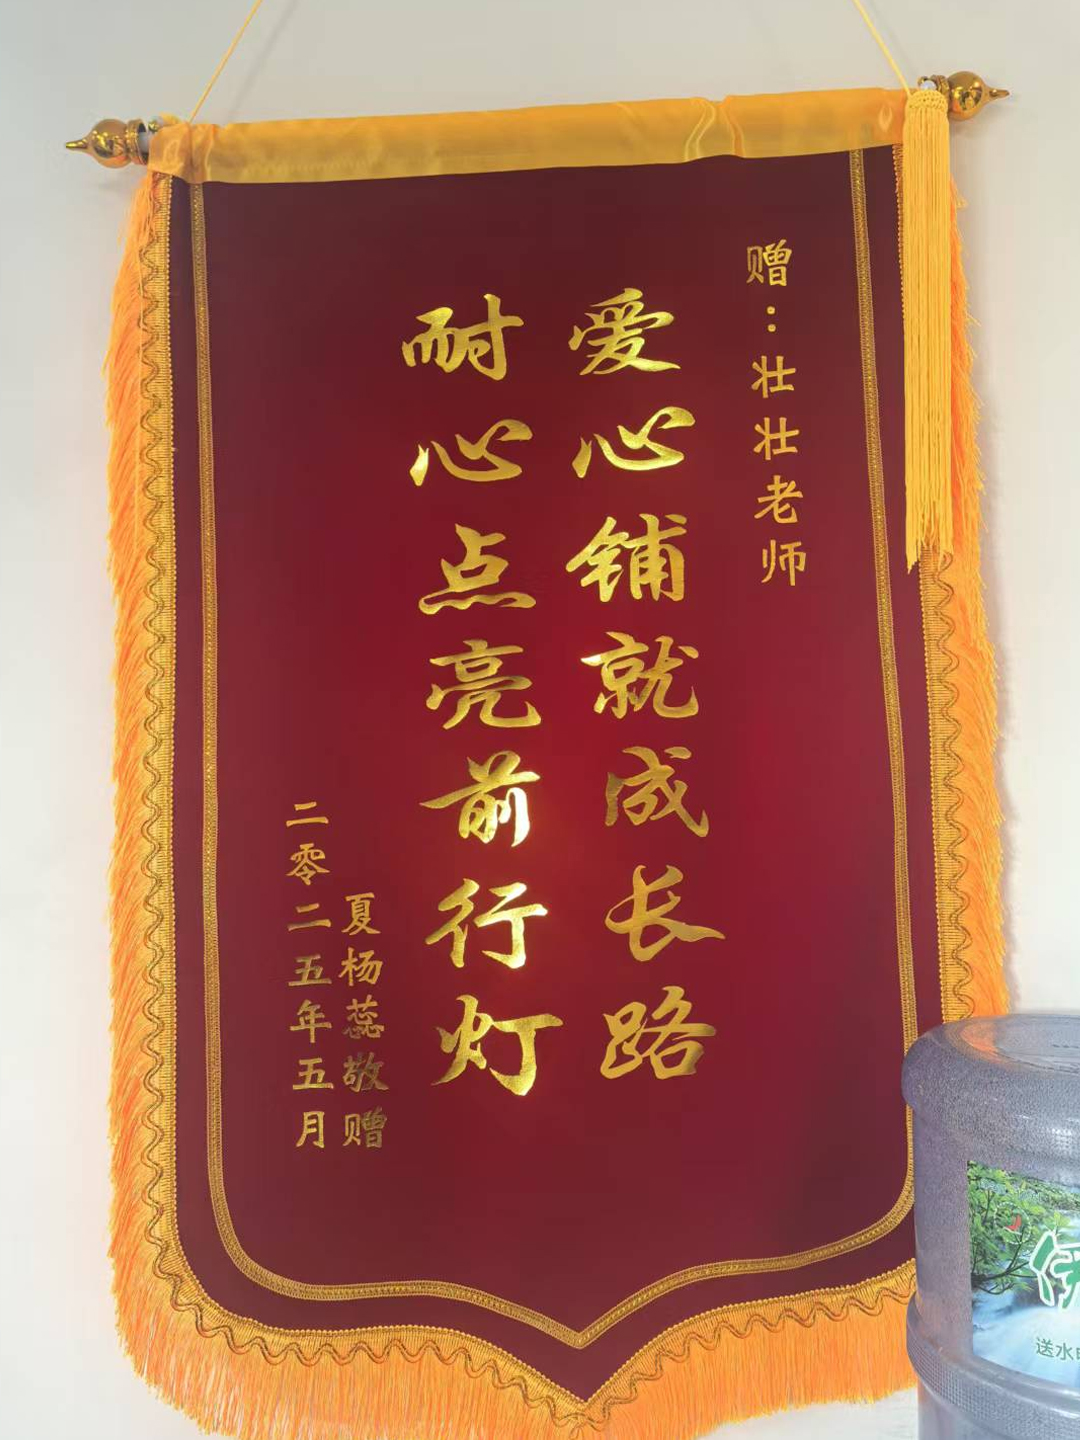 赠：壮壮老师
爱心铺就成长路
耐心点亮前行灯
夏杨蕊敬赠
二零二五年五月
送水